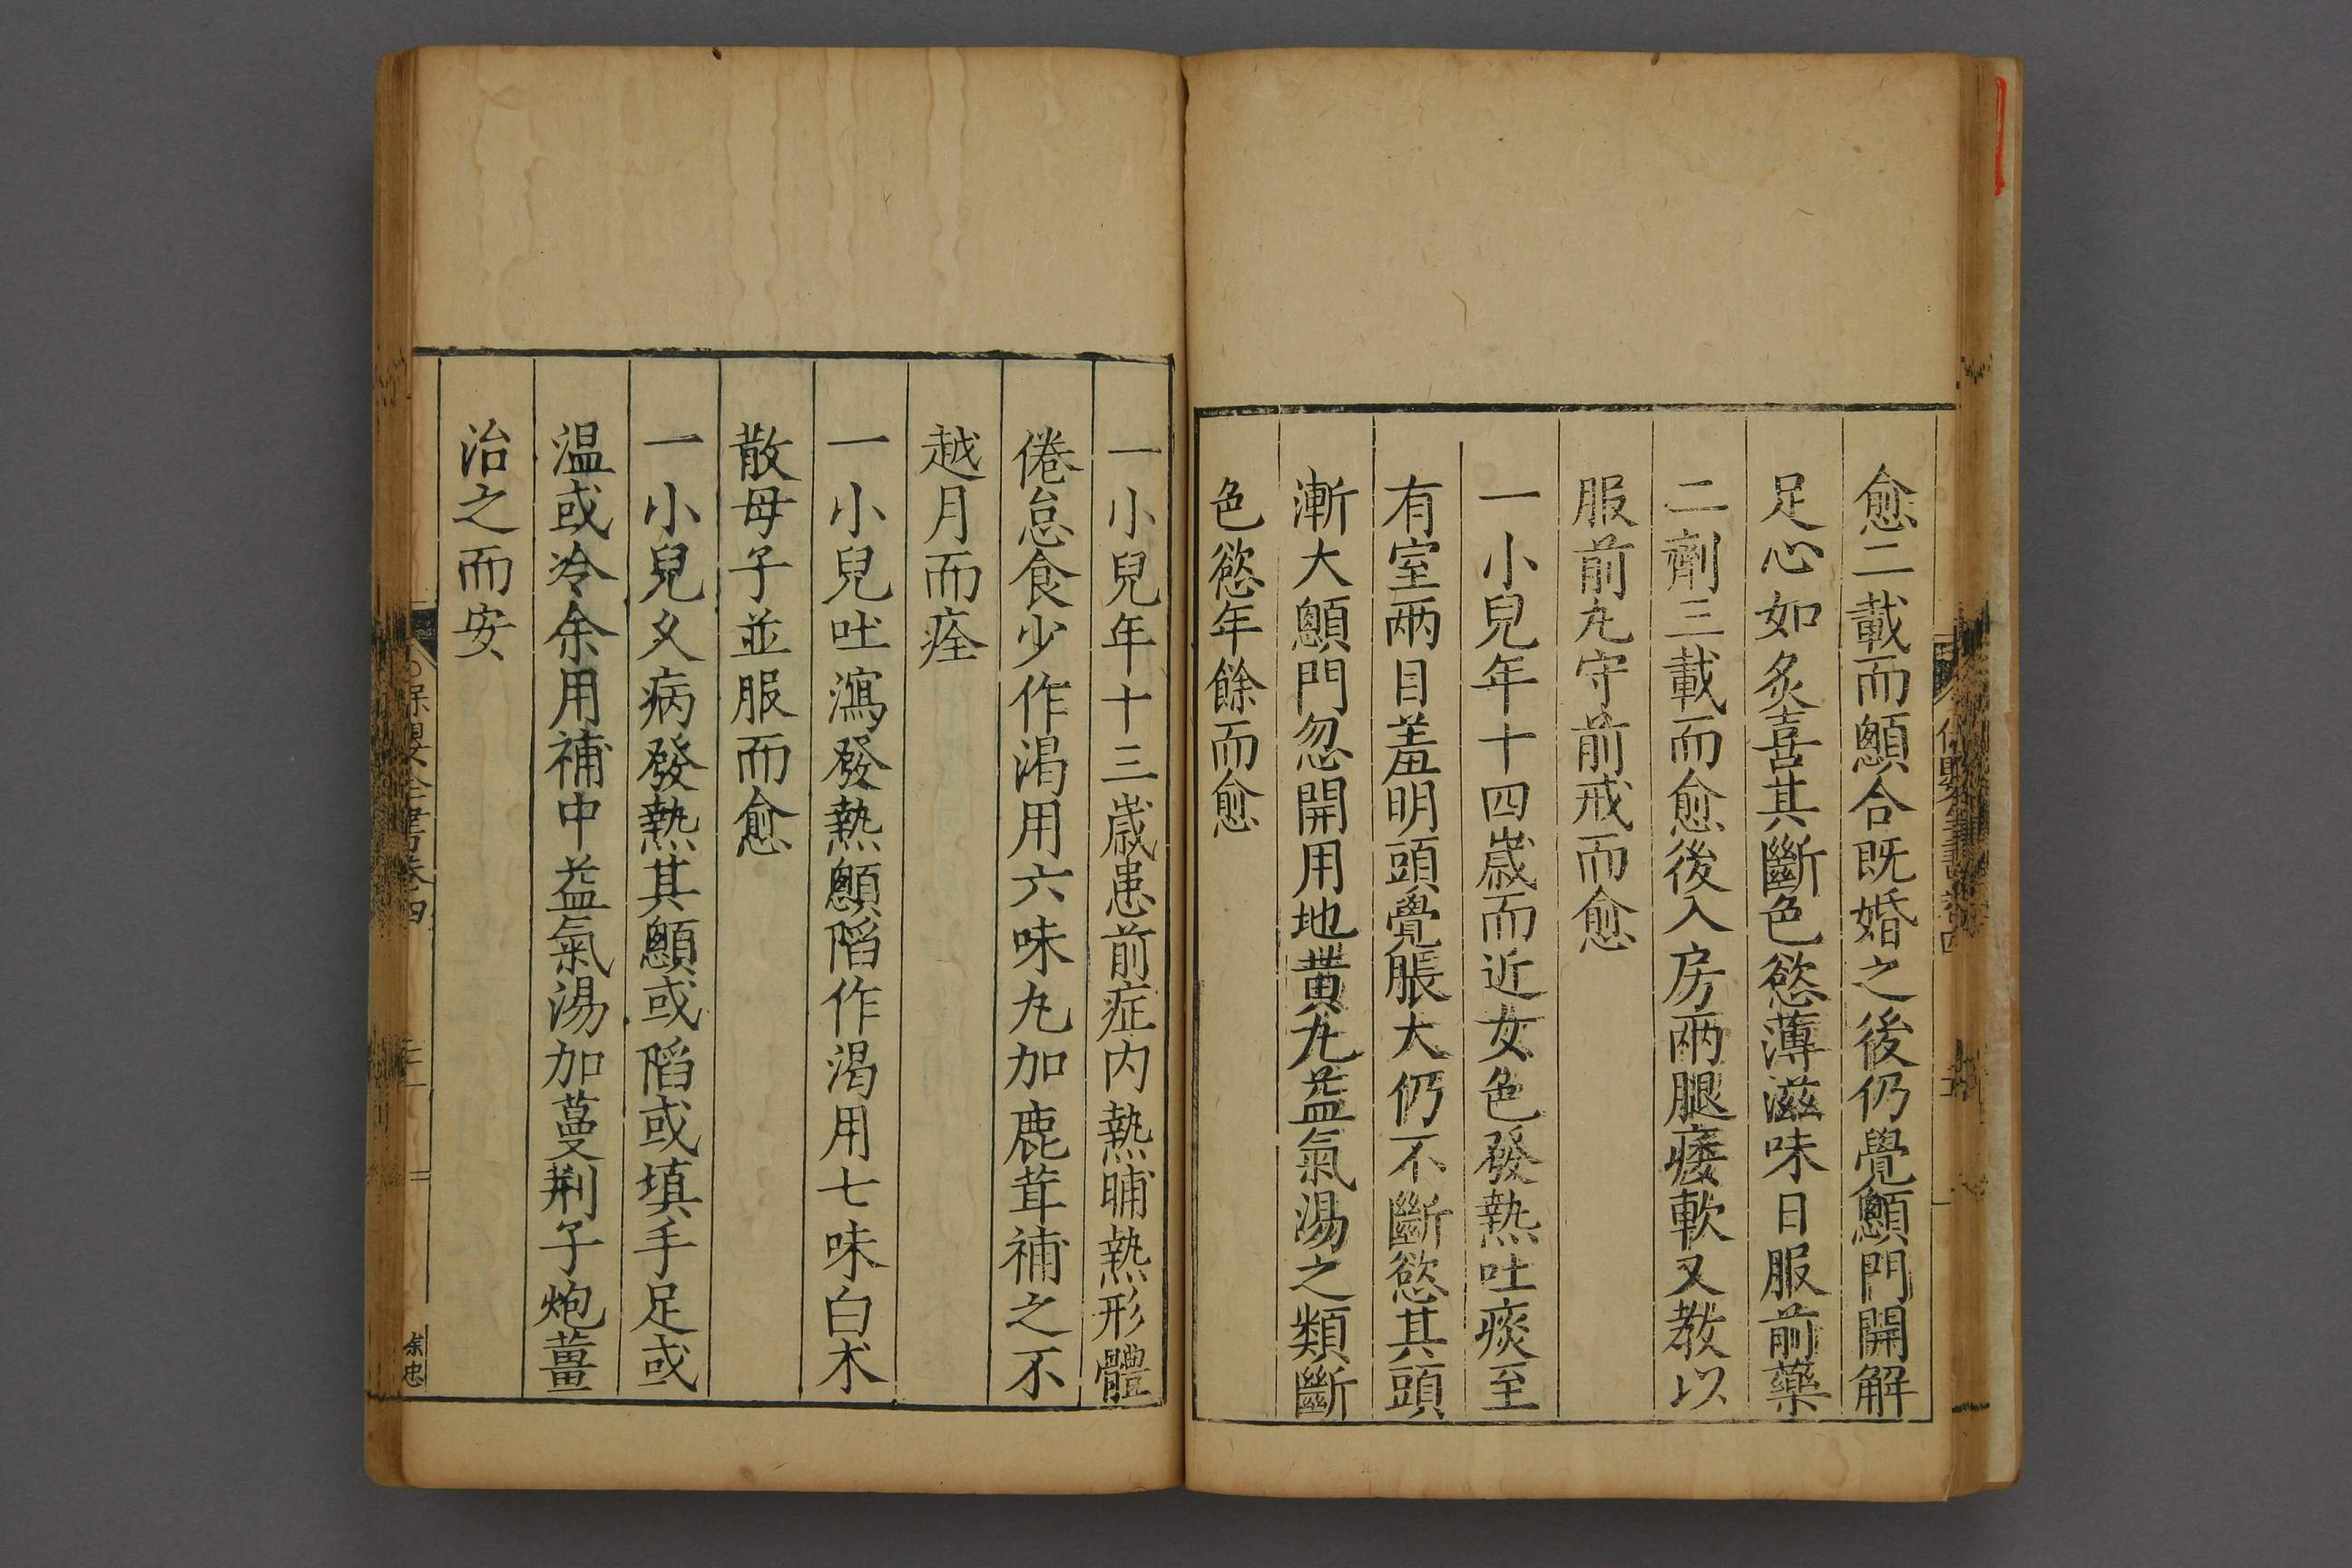 愈二載而顖合既婚之後仍覺顖門開解
足心如炙喜其斷色慾薄滋味日服前藥
二劑三載而愈後入房兩腿痿軟又教以
服前丸守前戒而愈
一小兒年十四歲而近女色發熱吐痰至
有室兩目羞明頭覺脹大仍不斷慾其頭
漸大顖門忽開用地黄丸益氣湯之類斷
色慾年餘而愈
一小兒年十三歲患前症内熱晡熱形體
倦怠食少作渴用六味丸加鹿茸補之不
越月而痊
一小兒吐瀉發熱顖陷作渴用七味白术
散母子並服而愈
一小兒久病發熱其顖或陷或填手足或
温或冷余用補中益氣湯加蔓荆子炮薑
治之而安
保嬰全書卷四
余忠